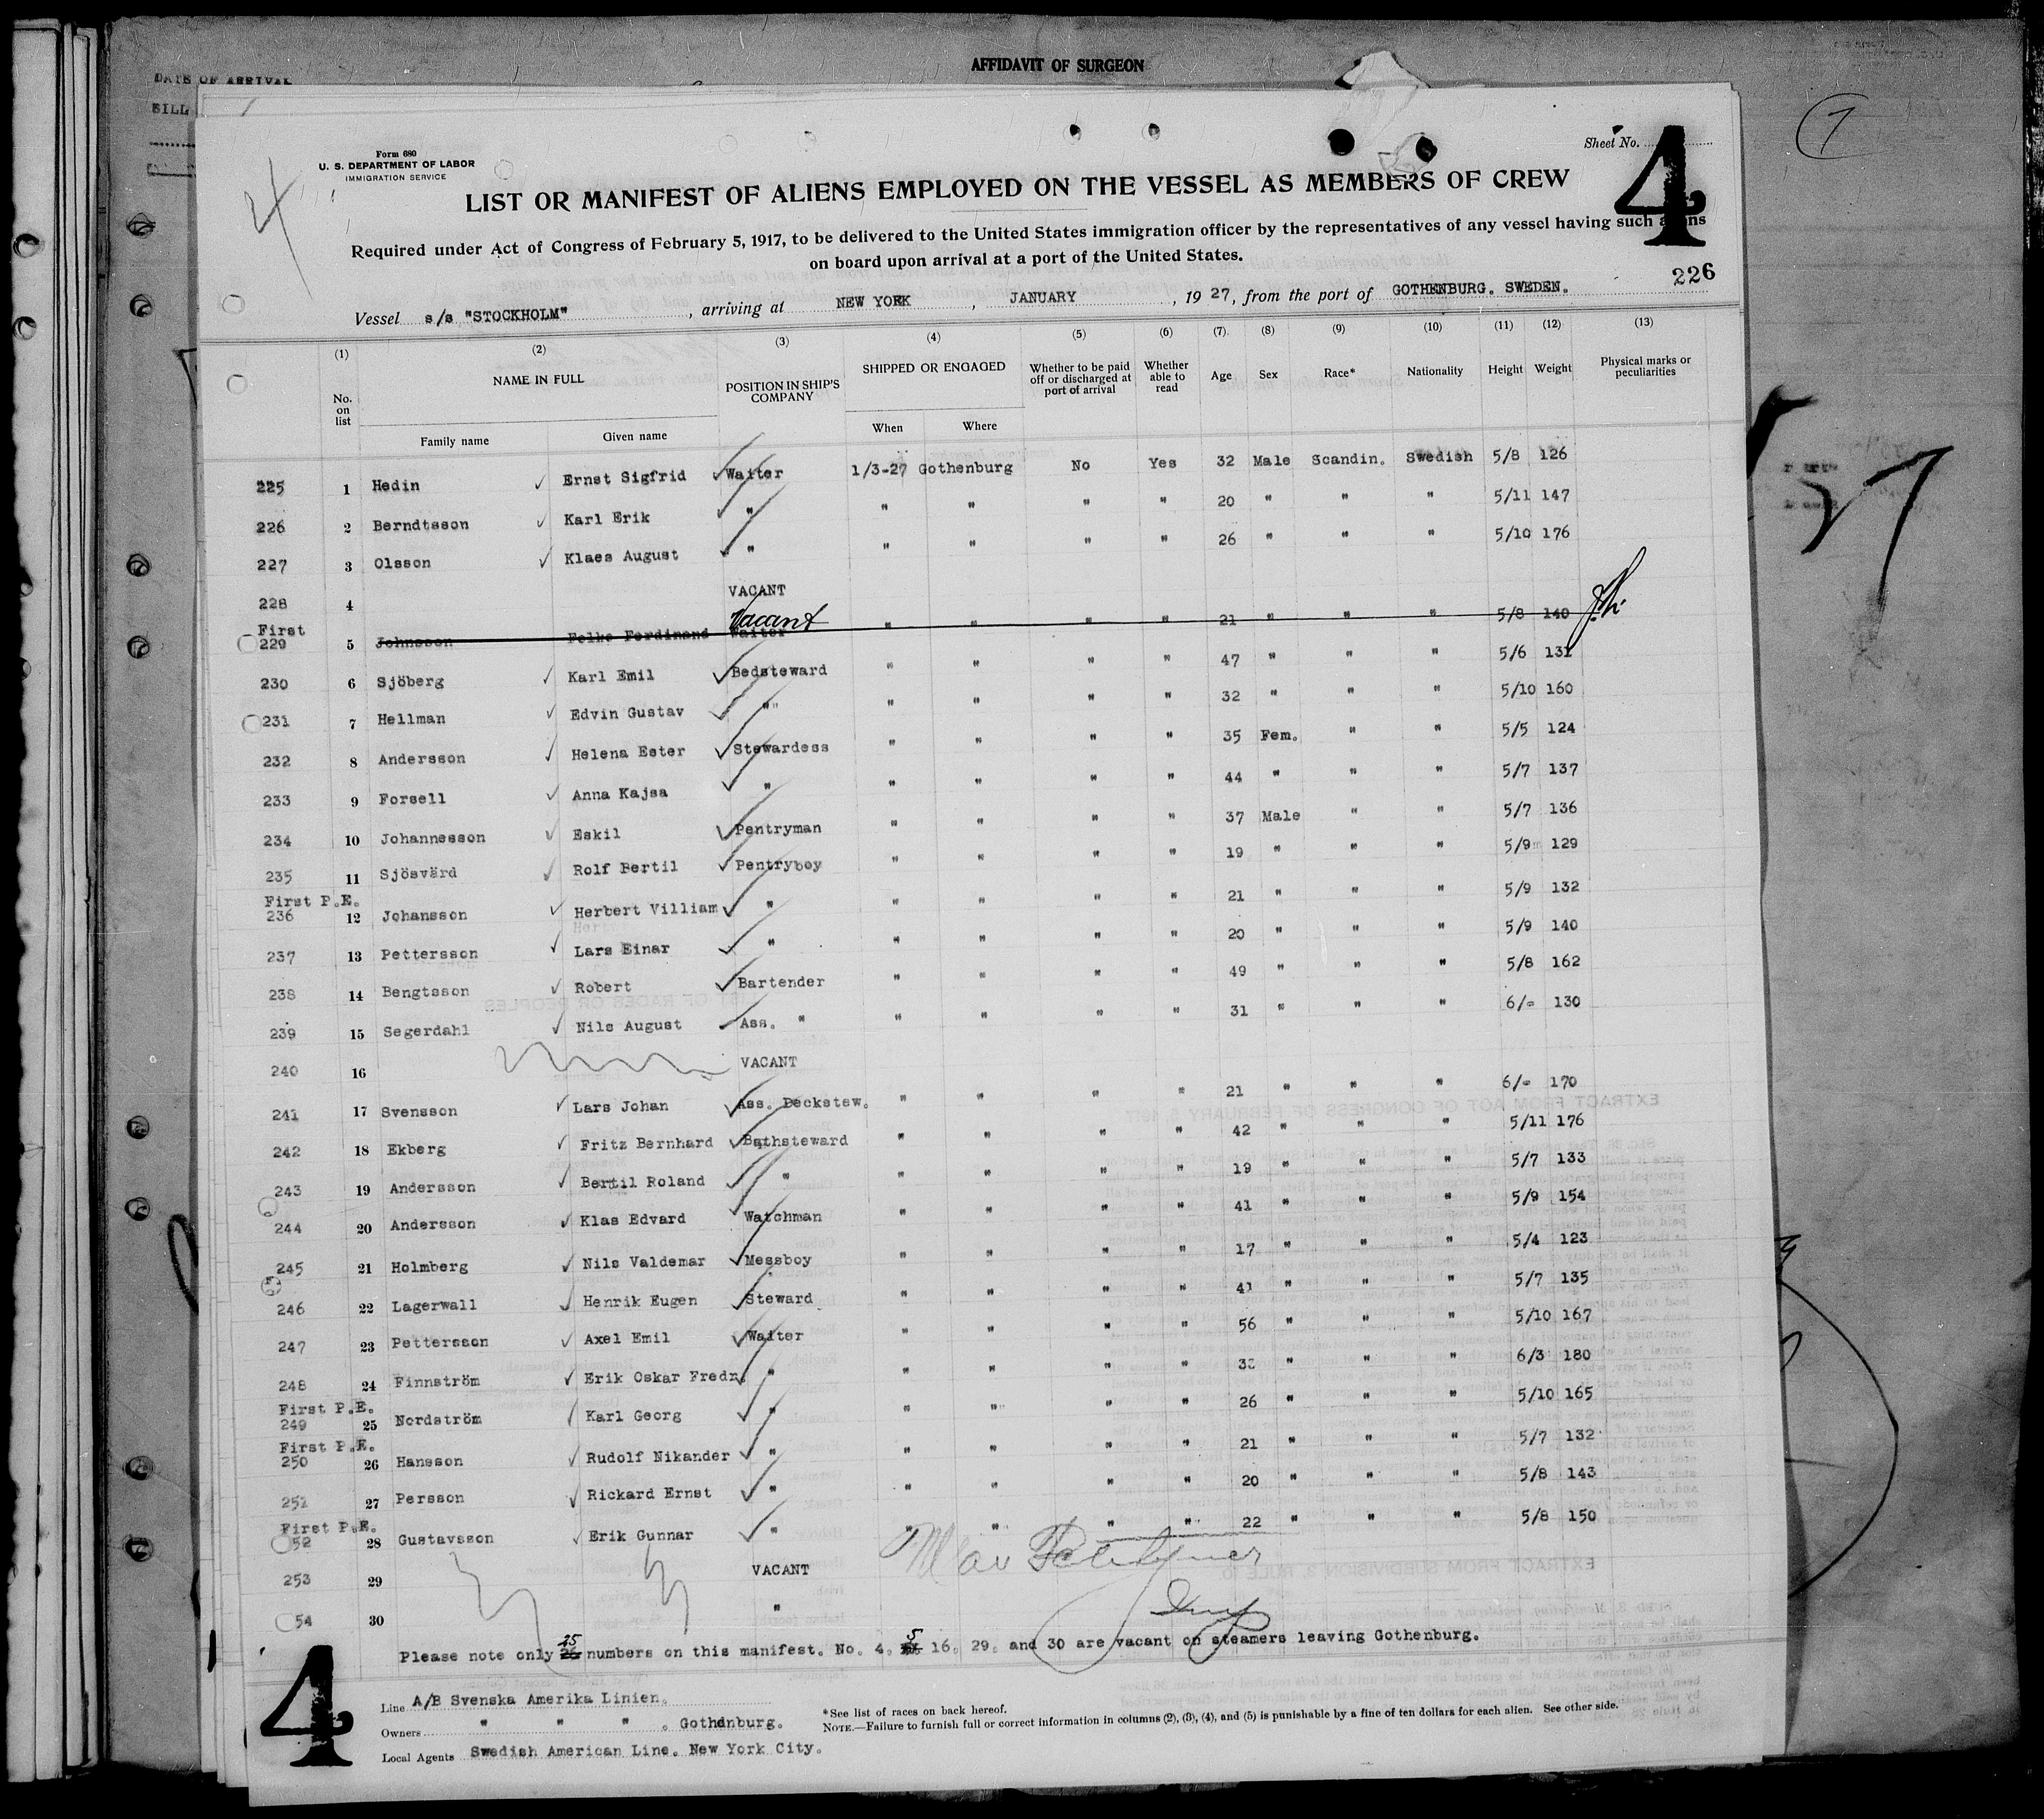 DATE OF ARRIVAL
AFFIDAVIT OF SURGEON
BILL
7
Form 680
U. S. DEPARTMENT OF LABOR
IMMIGRATION SERVICE
Sheet No.
4
4
LIST OR MANIFEST OF ALIENS EMPLOYED ON THE VESSEL AS MEMBERS OF CREW
Required under Act of Congress of February 5, 1917, to be delivered to the United States immigration officer by the representatives of any vessel having such aliens
on board upon arrival at a port of the United States.
226
Vessel s/s "STOCKHOLM", arriving at NEW YORK, JANUARY, 1927, from the port of GOTHENBURG. SWEDEN.
(1) (2) (3) (4) (5) (6) (7) (8) (9) (10) (11) (12) (13)
No. on list NAME IN FULL POSITION IN SHIP'S COMPANY SHIPPED OR ENGAGED Whether to be paid off or discharged at port of arrival Whether able to read Age Sex Race* Nationality Height Weight Physical marks or peculiarities
Family name Given name When Where
225 1 Hedin Ernst Sigfrid Waiter 1/3-27 Gothenburg No Yes 32 Male Scandin. Swedish 5/8 126
226 2 Berndtsson Karl Erik " " " " " 20 " " " 5/11 147
227 3 Olsson Klaes August " " " " " 26 " " " 5/10 176
228 4 VACANT
First Vacant
229 5 Johnsson Folke Ferdinand Waiter " " " " 21 " " " 5/8 140
230 6 Sjöberg Karl Emil Bedsteward " " " " 47 " " " 5/6 131
231 7 Hellman Edvin Gustav "" " " " " 32 " " " 5/10 160
232 8 Andersson Helena Ester Stewardess " " " " 35 Fem. " " 5/5 124
233 9 Forsell Anna Kajsa " " " " " 44 " " " 5/7 137
234 10 Johannesson Eskil Pentryman " " " " 37 Male " " 5/7 136
235 11 Sjösvärd Rolf Bertil Pentryboy " " " " 19 " " " 5/9 129
First P.E.
236 12 Johansson Herbert Villiam " " " " " 21 " " " 5/9 132
237 13 Pettersson Lars Einar " " " " " 20 " " " 5/9 140
238 14 Bengtsson Robert Bartender " " " " 49 " " " 5/8 162
239 15 Segerdahl Nils August Ass. " " " " " 31 " " " 6/- 130
240 16 VACANT
241 17 Svensson Lars Johan Ass. Deckstew. " " " " 21 " " " 6/- 170
242 18 Ekberg Fritz Bernhard Bathsteward " " " " 42 " " " 5/11 176
243 19 Andersson Bertil Roland " " " " " 19 " " " 5/7 133
244 20 Andersson Klas Edvard Watchman " " " " 41 " " " 5/9 154
245 21 Holmberg Nils Valdemar Messboy " " " " 17 " " " 5/4 123
246 22 Lagerwall Henrik Eugen Steward " " " " 41 " " " 5/7 135
247 23 Pettersson Axel Emil Waiter " " " " 56 " " " 5/10 167
248 24 Finnström Erik Oskar Fredr. " " " " " " " " 6/3 180
First P.E.
249 25 Nordström Karl Georg " " " " " 26 " " " 5/10 165
First P.E.
250 26 Hansson Rudolf Nikander " " " " " 21 " " " 5/7 132
251 27 Persson Rickard Ernst " " " " " 20 " " " 5/8 143
First P.E.
52 28 Gustavsson Erik Gunnar " " " " " 22 " " " 5/8 150
253 29 VACANT
54 30 "
Please note only 25 numbers on this manifest. No. 4, 5 16, 29, and 30 are vacant on steamers leaving Gothenburg.
4
Line A/B Svenska Amerika Linien.
Owners " " " . Gothenburg.
Local Agents Swedish American Line. New York City.
*See list of races on back hereof.
NOTE.—Failure to furnish full or correct information in columns (2), (3), (4), and (5) is punishable by a fine of ten dollars for each alien. See other side.